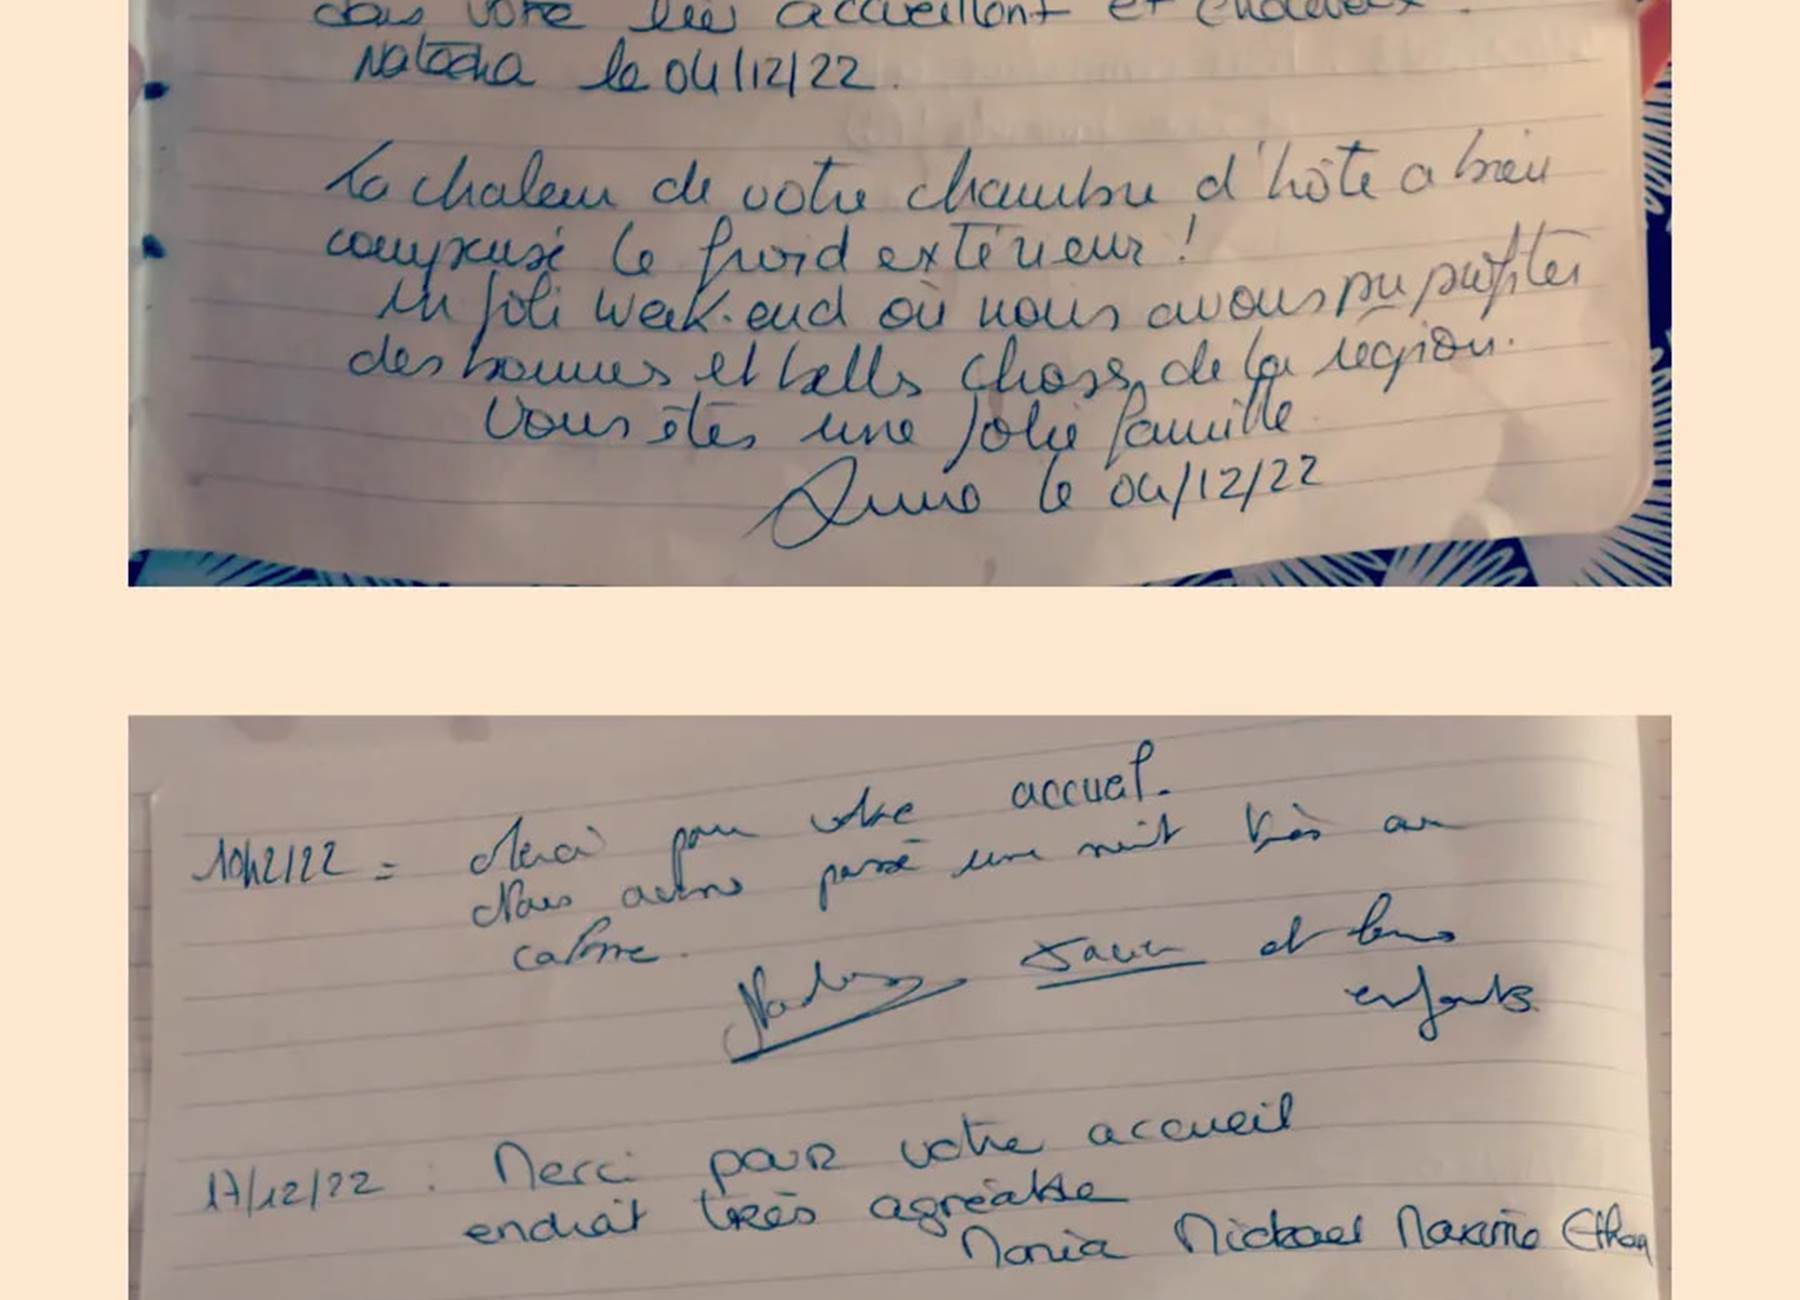 dans votre lieu accueillant et chaleureux.
Natacha le 04/12/22.
La chaleur de votre chambre d'hôte a bien
compensé le froid extérieur !
Un joli week-end où nous avons pu profiter
des bonnes et belles choses de la région.
Vous êtes une jolie famille
le 04/12/22
10/12/22 = Merci pour votre accueil.
Nous avons passé une nuit très au
calme.
et leurs
enfants
17/12/22 : Merci pour votre accueil
endroit très agréable
Mickael Maxime Ethan